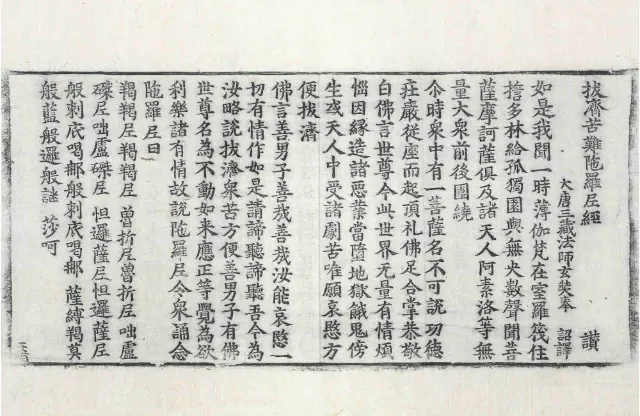 拔濟苦難陁羅尼經 讃
大唐三藏法師玄奘奉 詔譯
如是我聞一時薄伽梵在室羅筏住
誓多林給孤獨園與無央數聲聞菩
薩摩訶薩俱及諸天人阿素洛等無
量大衆前後圍繞
尒時衆中有一菩薩名不可說功德
莊嚴從座而起頂礼佛足合掌恭敬
白佛言世尊今此世界无量有情煩
惱因緣造諸惡業當墮地獄餓鬼傍
生或天人中受諸劇苦唯願哀愍方
便拔濟
佛言善男子善哉善哉汝能哀愍一
切有情作如是請諦聽諦聽吾今為
汝略說拔濟衆苦方便善男子有佛
世尊名為不動如来應正等覺為欲
利樂諸有情故說陁羅尼令衆誦念
陁羅尼曰
羯羯尼羯羯尼 魯折尼魯折尼 咄盧
磔尼咄盧磔尼 怛邏薩尼怛邏薩尼
般剌底喝那般剌底喝那 薩縛羯莫
般藍般邏般謎 莎呵